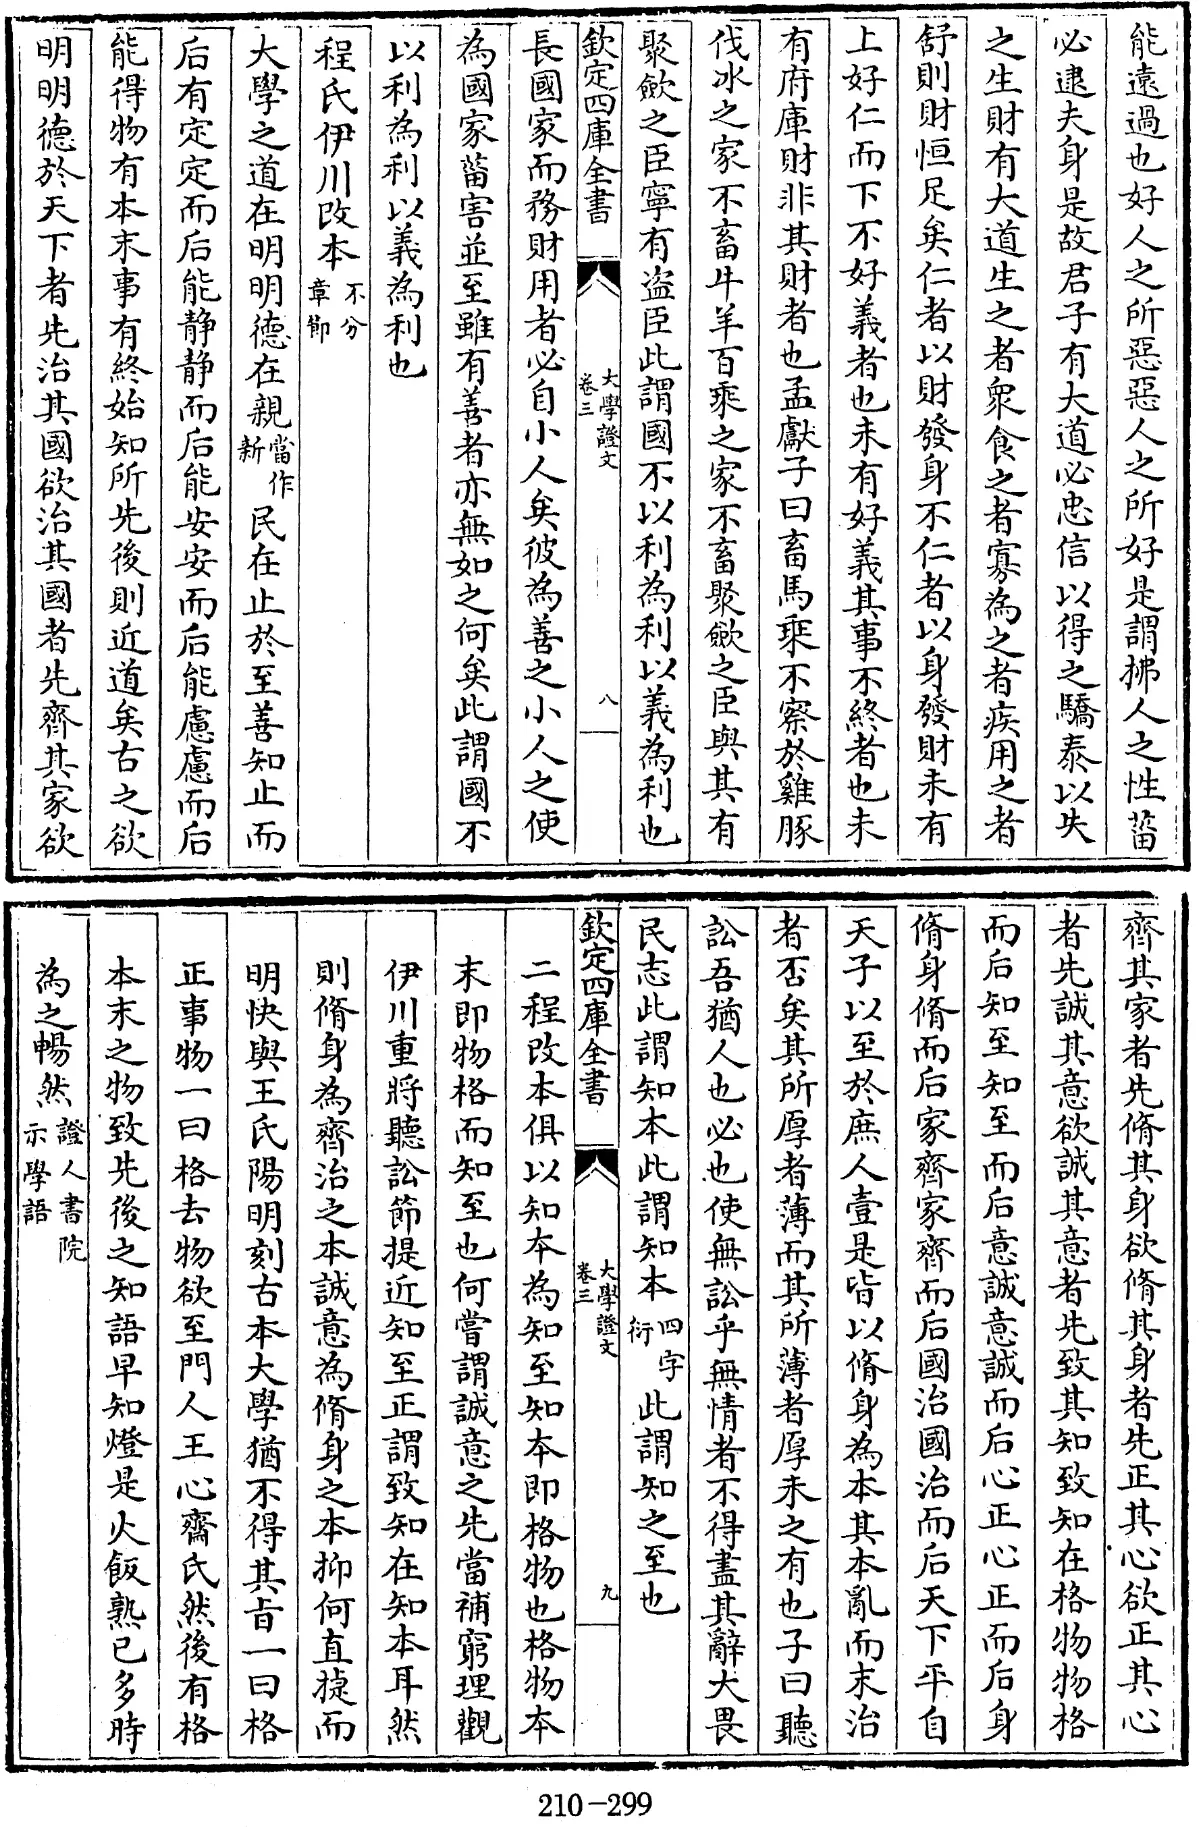 能遠過也好人之所惡惡人之所好是謂拂人之性菑
必逮夫身是故君子有大道必忠信以得之驕泰以失
之生財有大道生之者衆食之者寡為之者疾用之者
舒則財恒足矣仁者以財發身不仁者以身發財未有
上好仁而下不好義者也未有好義其事不終者也未
有府庫財非其財者也孟獻子曰畜馬乘不察於雞豚
伐冰之家不畜牛羊百乘之家不畜聚斂之臣與其有
聚斂之臣寧有盜臣此謂國不以利為利以義為利也
欽定四庫全書 大學證文 卷三 八
長國家而務財用者必自小人矣彼為善之小人之使
為國家菑害並至雖有善者亦無如之何矣此謂國不
以利為利以義為利也
程氏伊川改本不分章節
大學之道在明明德在親當作新民在止於至善知止而
后有定定而后能静静而后能安安而后能慮慮而后
能得物有本末事有終始知所先後則近道矣古之欲
明明德於天下者先治其國欲治其國者先齊其家欲
齊其家者先脩其身欲脩其身者先正其心欲正其心
者先誠其意欲誠其意者先致其知致知在格物物格
而后知至知至而后意誠意誠而后心正心正而后身
脩身脩而后家齊家齊而后國治國治而后天下平自
天子以至於庶人壹是皆以脩身為本其本亂而末治
者否矣其所厚者薄而其所薄者厚未之有也子曰聽
訟吾猶人也必也使無訟乎無情者不得盡其辭大畏
民志此謂知本此謂知本四字衍此謂知之至也
欽定四庫全書 大學證文 卷三 九
二程改本俱以知本為知至知本即格物也格物本
末即物格而知至也何嘗謂誠意之先當補窮理觀
伊川重將聽訟節提近知至正謂致知在知本耳然
則脩身為齊治之本誠意為脩身之本抑何直捷而
明快與王氏陽明刻古本大學猶不得其旨一曰格
正事物一曰格去物欲至門人王心齋氏然後有格
本末之物致先後之知語早知燈是火飯熟已多時
為之暢然證人書院示學語
210-299